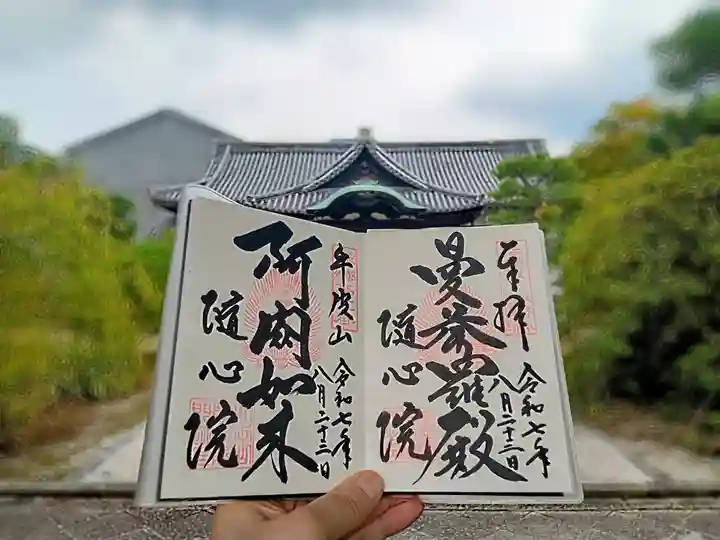 奉拝
令和七年
八月二十二日
曼荼羅殿
随心院
牛皮山
令和七年
八月二十二日
阿閦如来
随心院